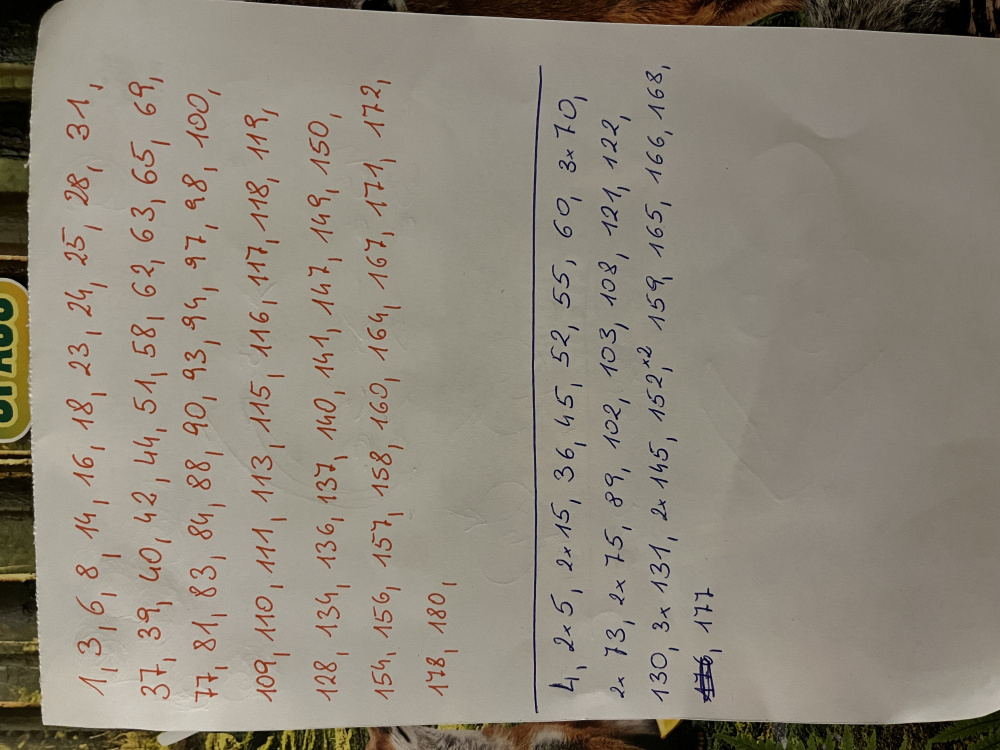 1, 3, 6, 8, 14, 16, 18, 23, 24, 25, 28, 31,
37, 39, 40, 42, 44, 51, 58, 62, 63, 65, 69,
77, 81, 83, 84, 88, 90, 93, 94, 97, 98, 100,
109, 110, 111, 113, 115, 116, 117, 118, 119,
128, 134, 136, 137, 140, 141, 147, 149, 150,
154, 156, 157, 158, 160, 164, 167, 171, 172,
178, 180,
4, 2x5, 2x15, 36, 45, 52, 55, 60, 3x70,
2x 73, 2x75, 89, 102, 103, 108, 121, 122,
130, 3x131, 2x145, 152,x2 159, 165, 166, 168,
, 177